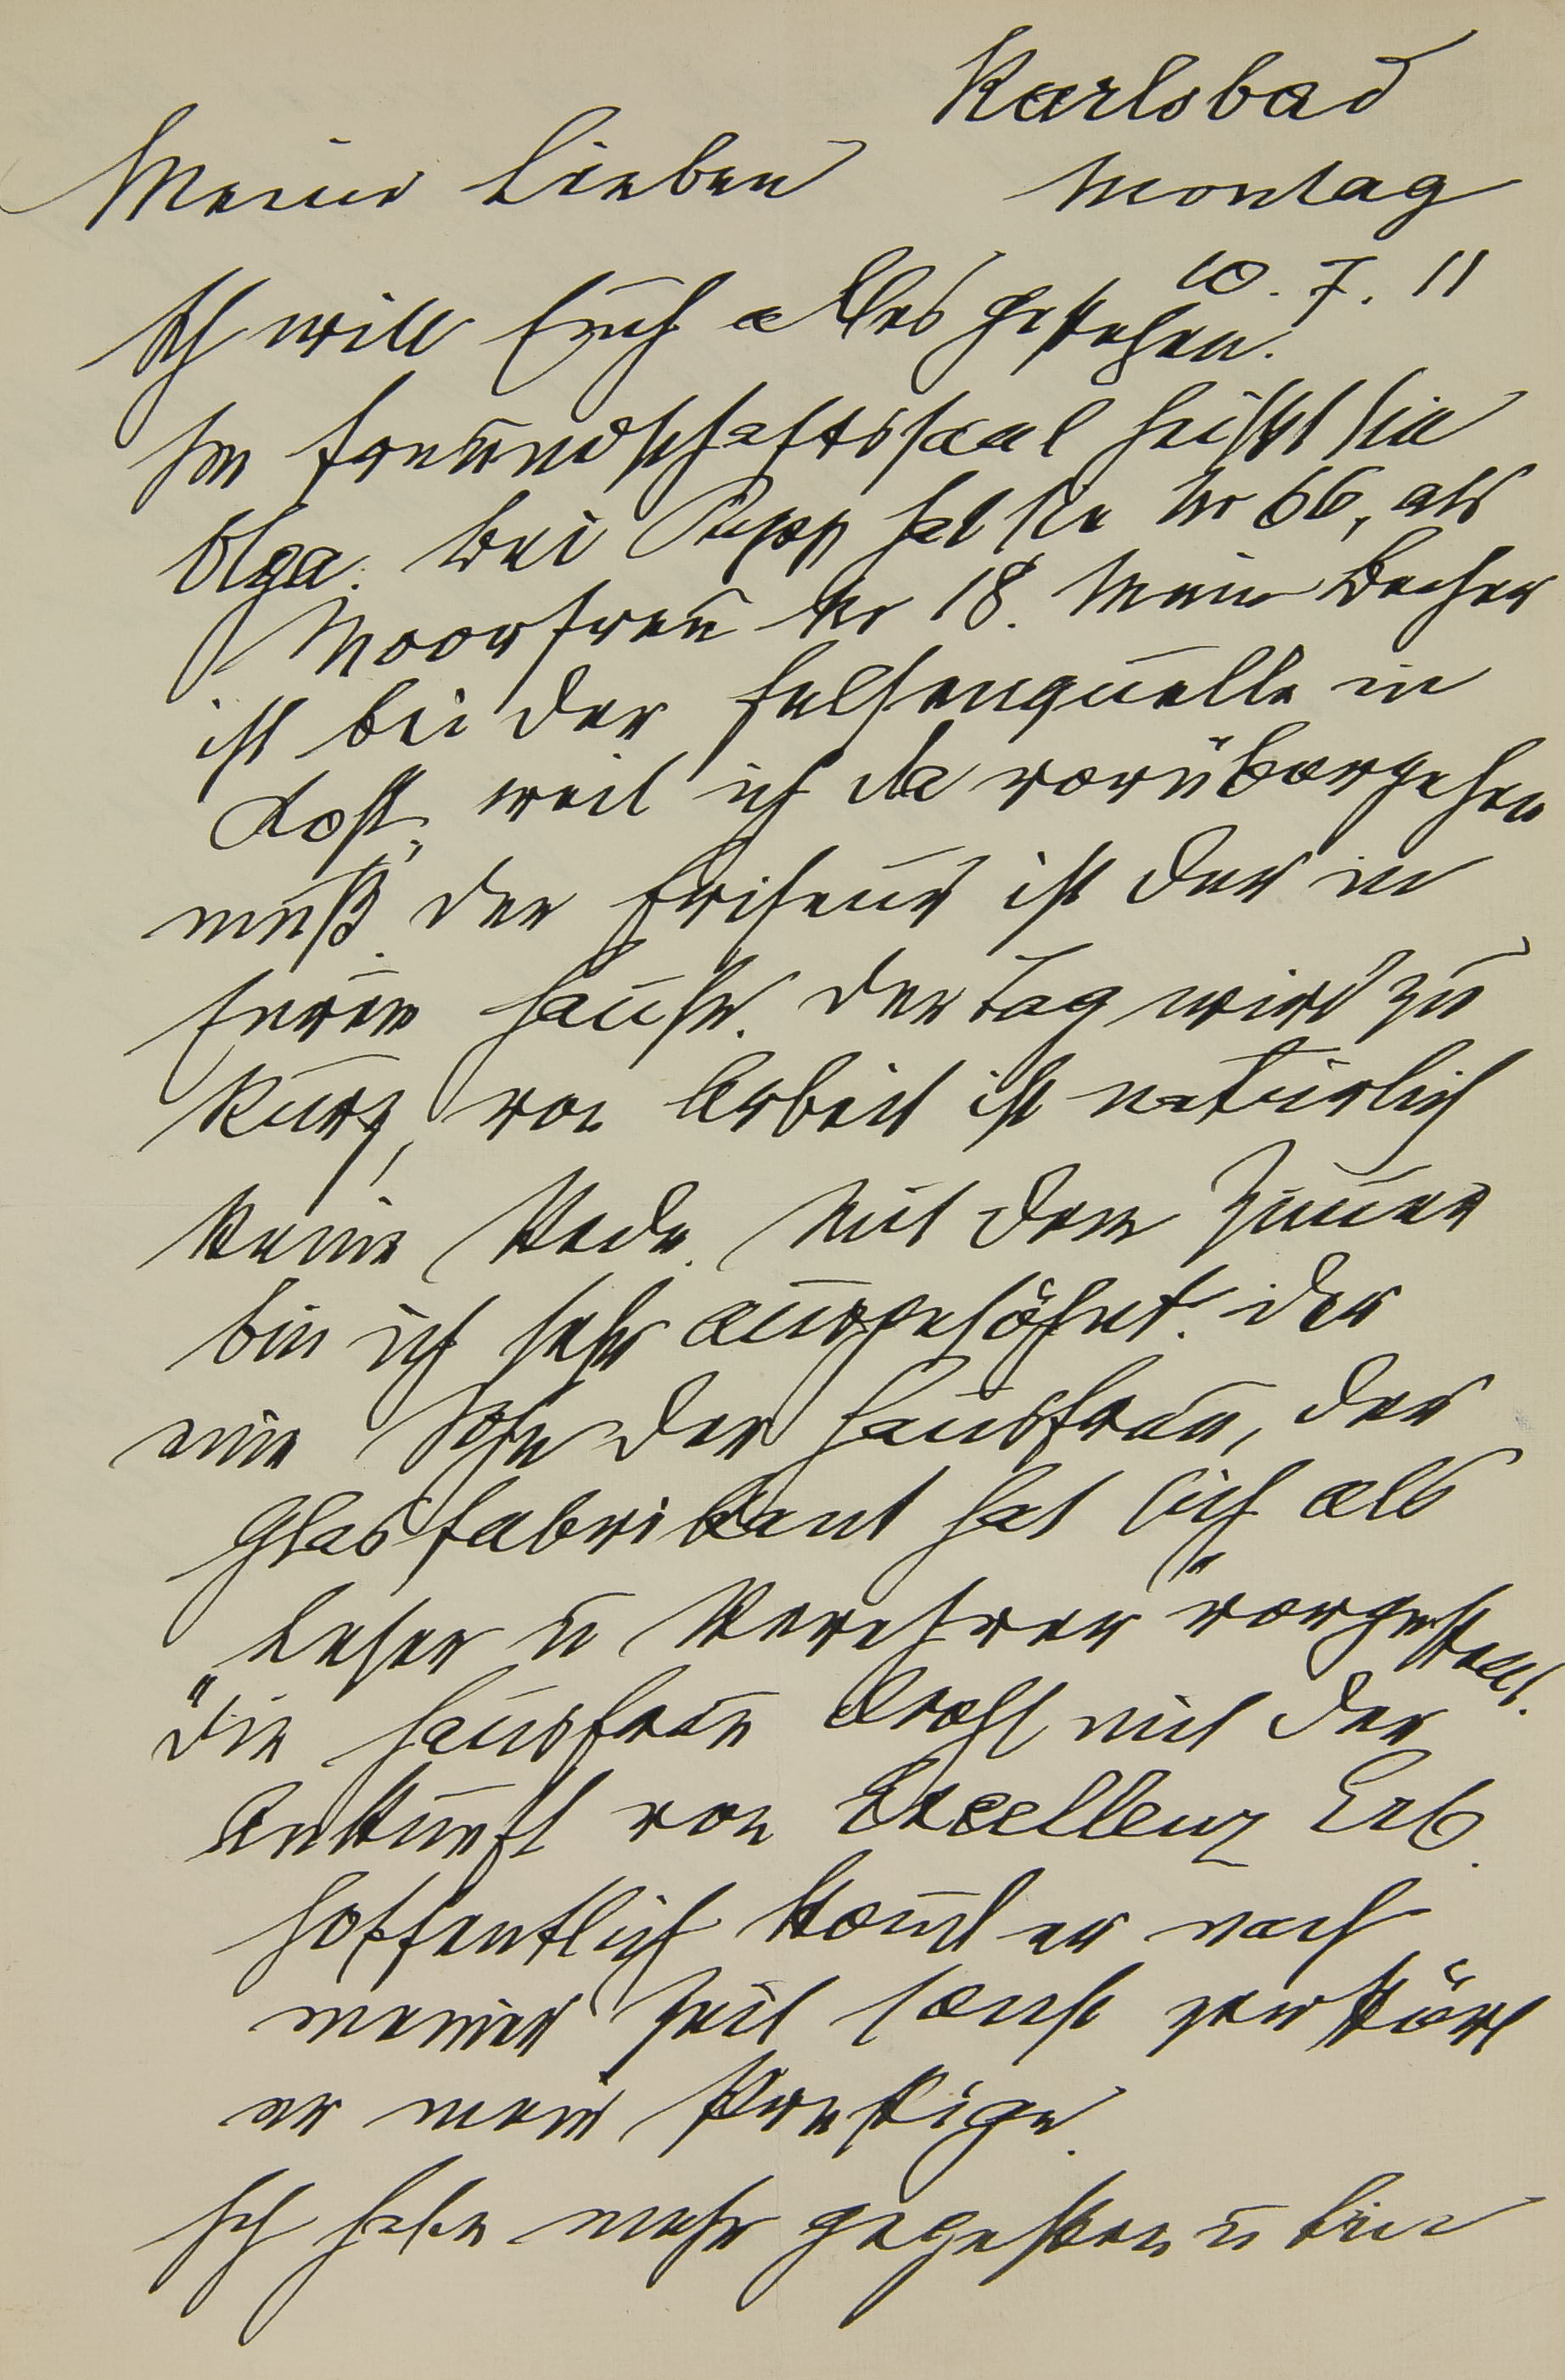 Karlsbad
Meine Lieben
Montag
10. 7. 11
Ich will Euch alles gestehen.
Im Freundschaftssaal heißt sie
Olga. Bei Pupp hat sie Nr 66, als
Moorfrau Nr 18. Mein Becher
ist bei der Felsenquelle in
Kost, weil ich da vorübergehen
muß. Der Friseur ist der in
Eurem Hause. Der Tag wird zu
kurz, von Arbeit ist natürlich
keine Rede. Mit dem Zimmer
bin ich sehr ausgesöhnt. Der
eine Sohn der Hausfrau, der
Glasfabrikant hat sich als
"Leser u Verehrer" vorgestellt.
Die Hausfrau droht mit der
Ankunft von Excellenz Erb.
Hoffentlich kom̄t er nach
meiner Zeit sonst zerstört
er mein Prestige.
Ich habe mehr gegessen u bin